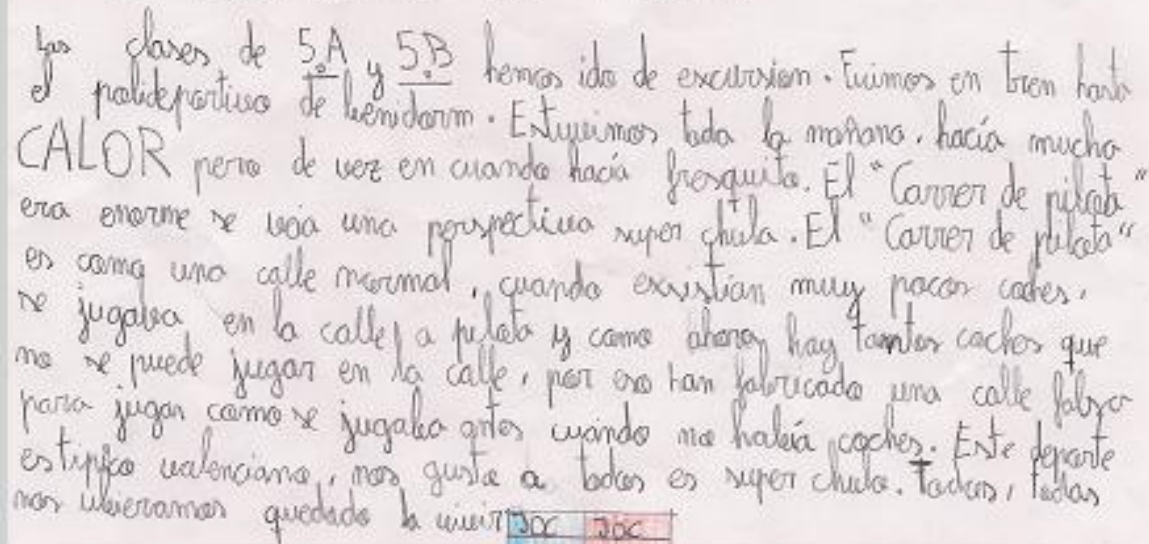 Las clases de 5.A y 5.B hemos ido de excursion. Fuimos en tren hasta
el polideportivo de benidorm. Estuvimos toda la mañana. hacía mucho
CALOR pero de vez en cuando hacía fresquito. El "Carrer de pilota"
era enorme se veia una perspectiva super chula. El "Carrer de pilota"
es como una calle normal, cuando existian muy pocos coches,
se jugaba en la calle a pilota y como ahora hay tantos coches que
no se puede jugar en la calle, por eso han fabricado una calle falsa
para jugar como se jugaba antes cuando no había coches. Este deporte
es tipico valenciano, nos gusta a todos es super chulo. Todos, todas
nos ubieramos quedado a vivir JOC JOC